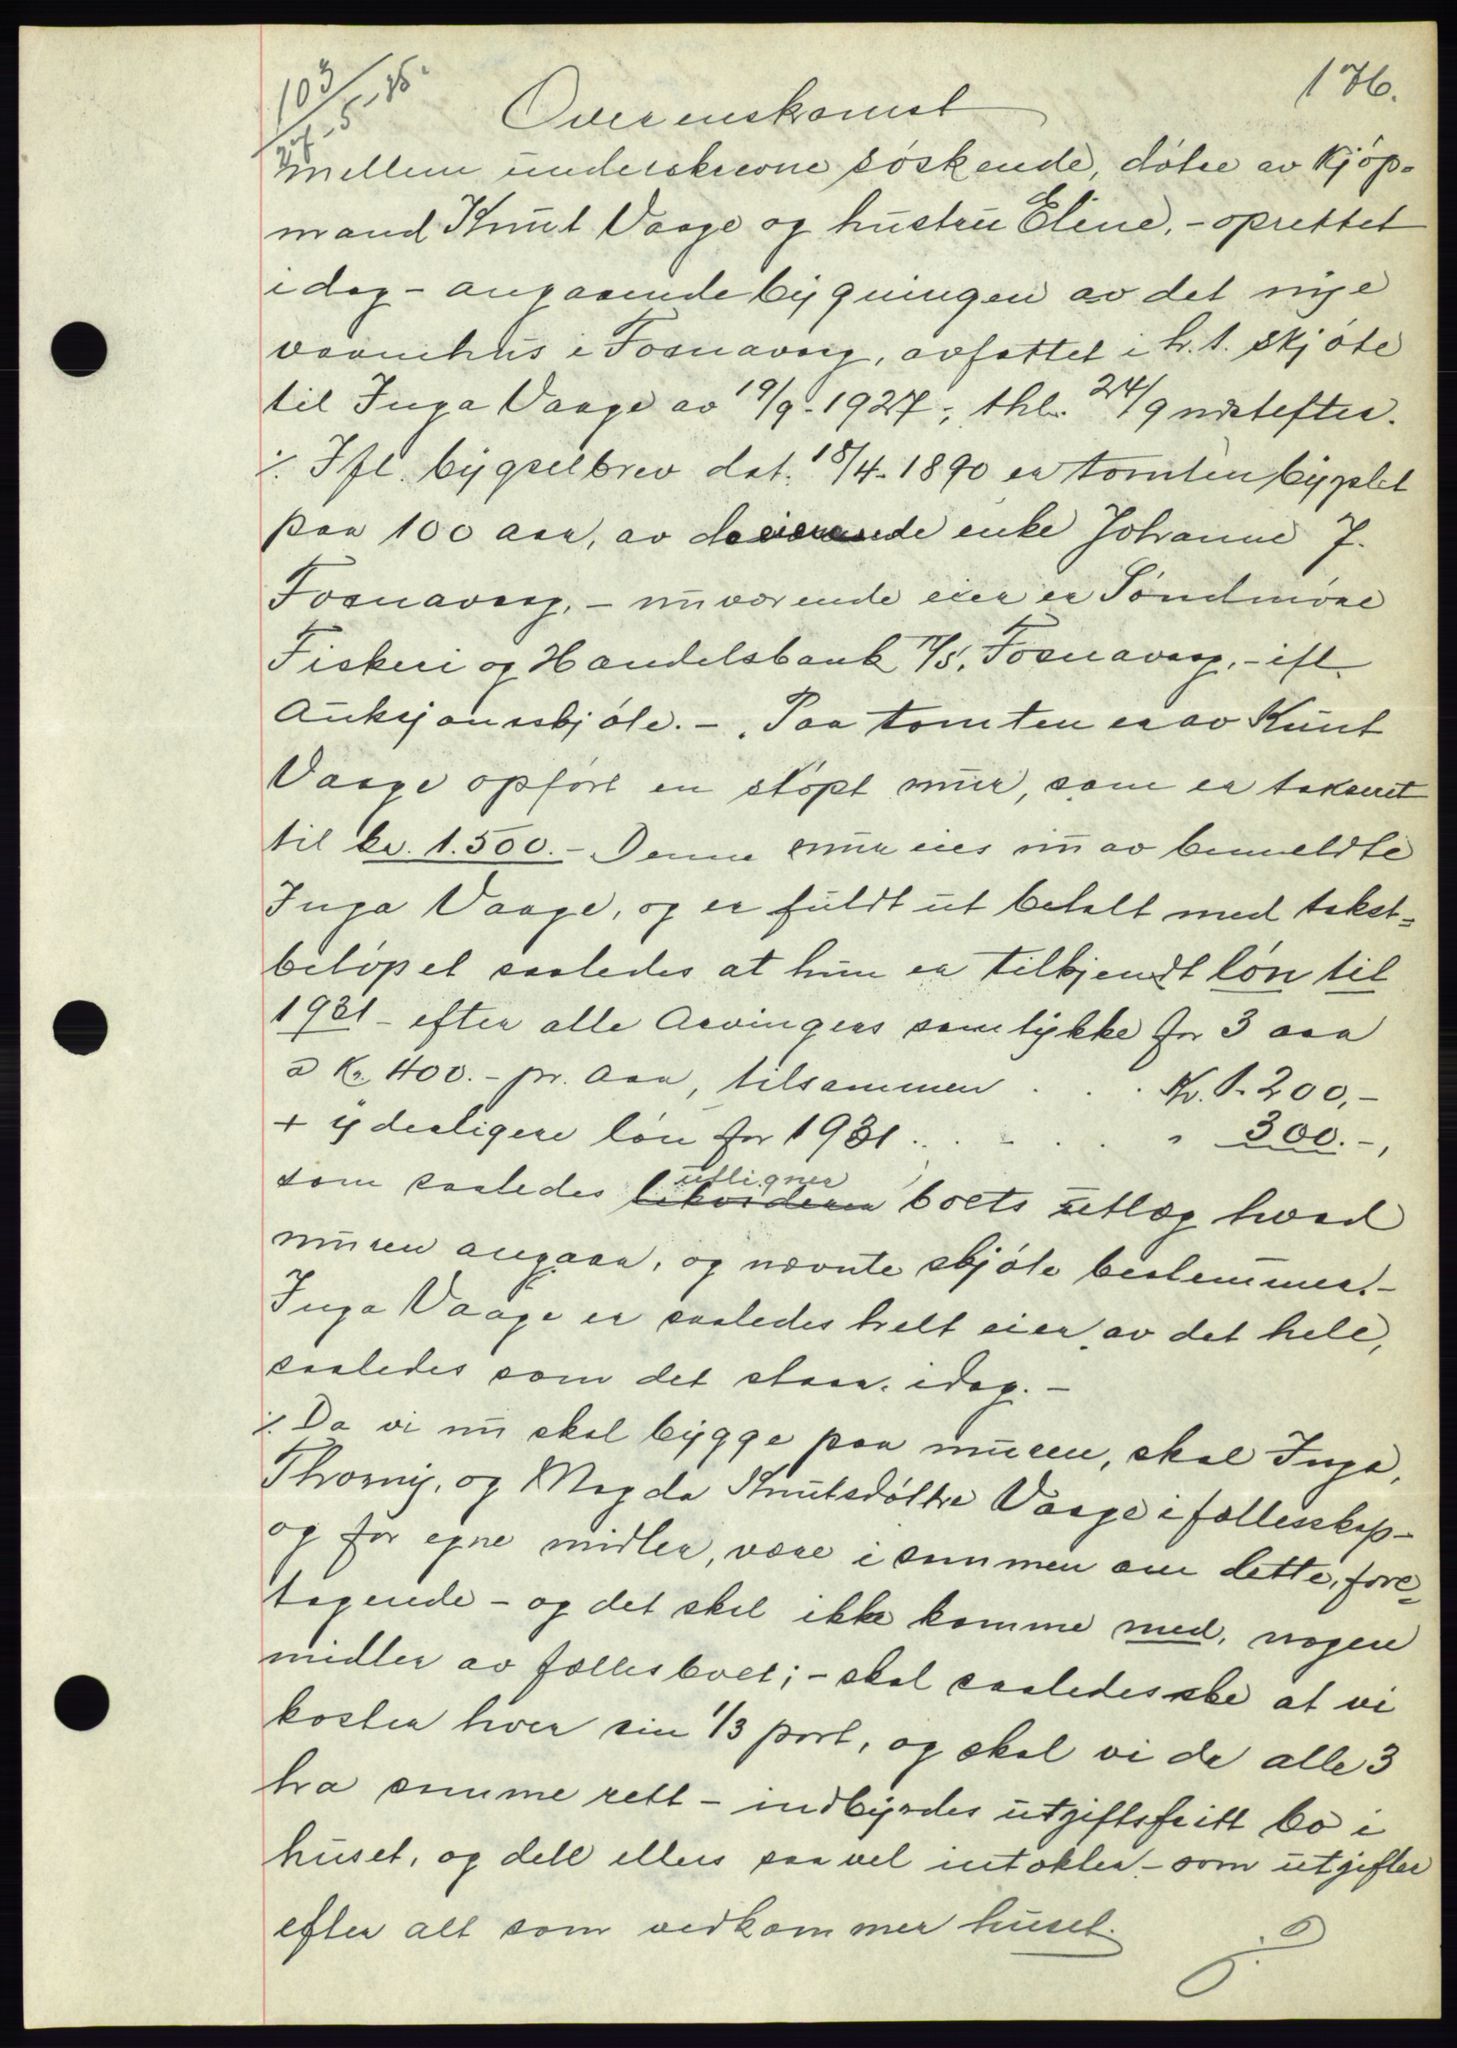 103
27-5-35.
176.
Overenskomst
mellem underskrevne søskende, døtre av Kjøp-
mand Knut Vaage og hustru Eline, - oprettet
idag - angaaende bygningen av det nye
vaanehus i Fosnavaag, avfattet i h.t. skjøte
til Inga Vaage av 19/9-1927, thl. 24/9 næstefter.
⁒ Ifl. bygselbrev dat. 18/4-1890 er tomten bygslet
paa 100 aar, av daværende enke Johanne J.
Fosnavaag, - nuværende eier er Søndmøre
Fiskeri og Handelsbank A/S, Fosnavaag, - ifl.
Auksjonsskjøte. - Paa tomten er av Knut
Vaage opført en støpt mur, som er taksert
til kr. 1.500.- Denne mur eies nu av bemeldte
Inga Vaage, og er fuldt ut betalt med takst-
beløpet saaledes at hun er tilkjendt løn til
1931 - efter alle Arvingers samtykke for 3 aar
a Kr. 400.- pr. Aar, tilsammen . . . Kr. 1.200,-
+ yderligere løn for 1931 . . . . . " 300.-,
som saaledes utligner boets utlæg hvad
muren angaar, og nævnte skjøte bestemmer.-
Inga Vaage er saaledes helt eier av det hele,
saaledes som det staar idag. -
⁒ Da vi nu skal bygge paa muren, skal Inga,
Thorny, og Magda Knutsdøttre Vaage i fællesskap -
og for egne midler, være i sammen om dette fore-
tagende - og det skal ikke komme med, nogen
midler av fællesboet; - skal saaledes ske at vi
koster hver sin 1/3 part, og skal vi da alle 3
ha samme rett - indbyrdes utgiftsfritt bo i
huset, og dele ellers saavel intækter - som utgifter
efter alt som vedkommer huset.